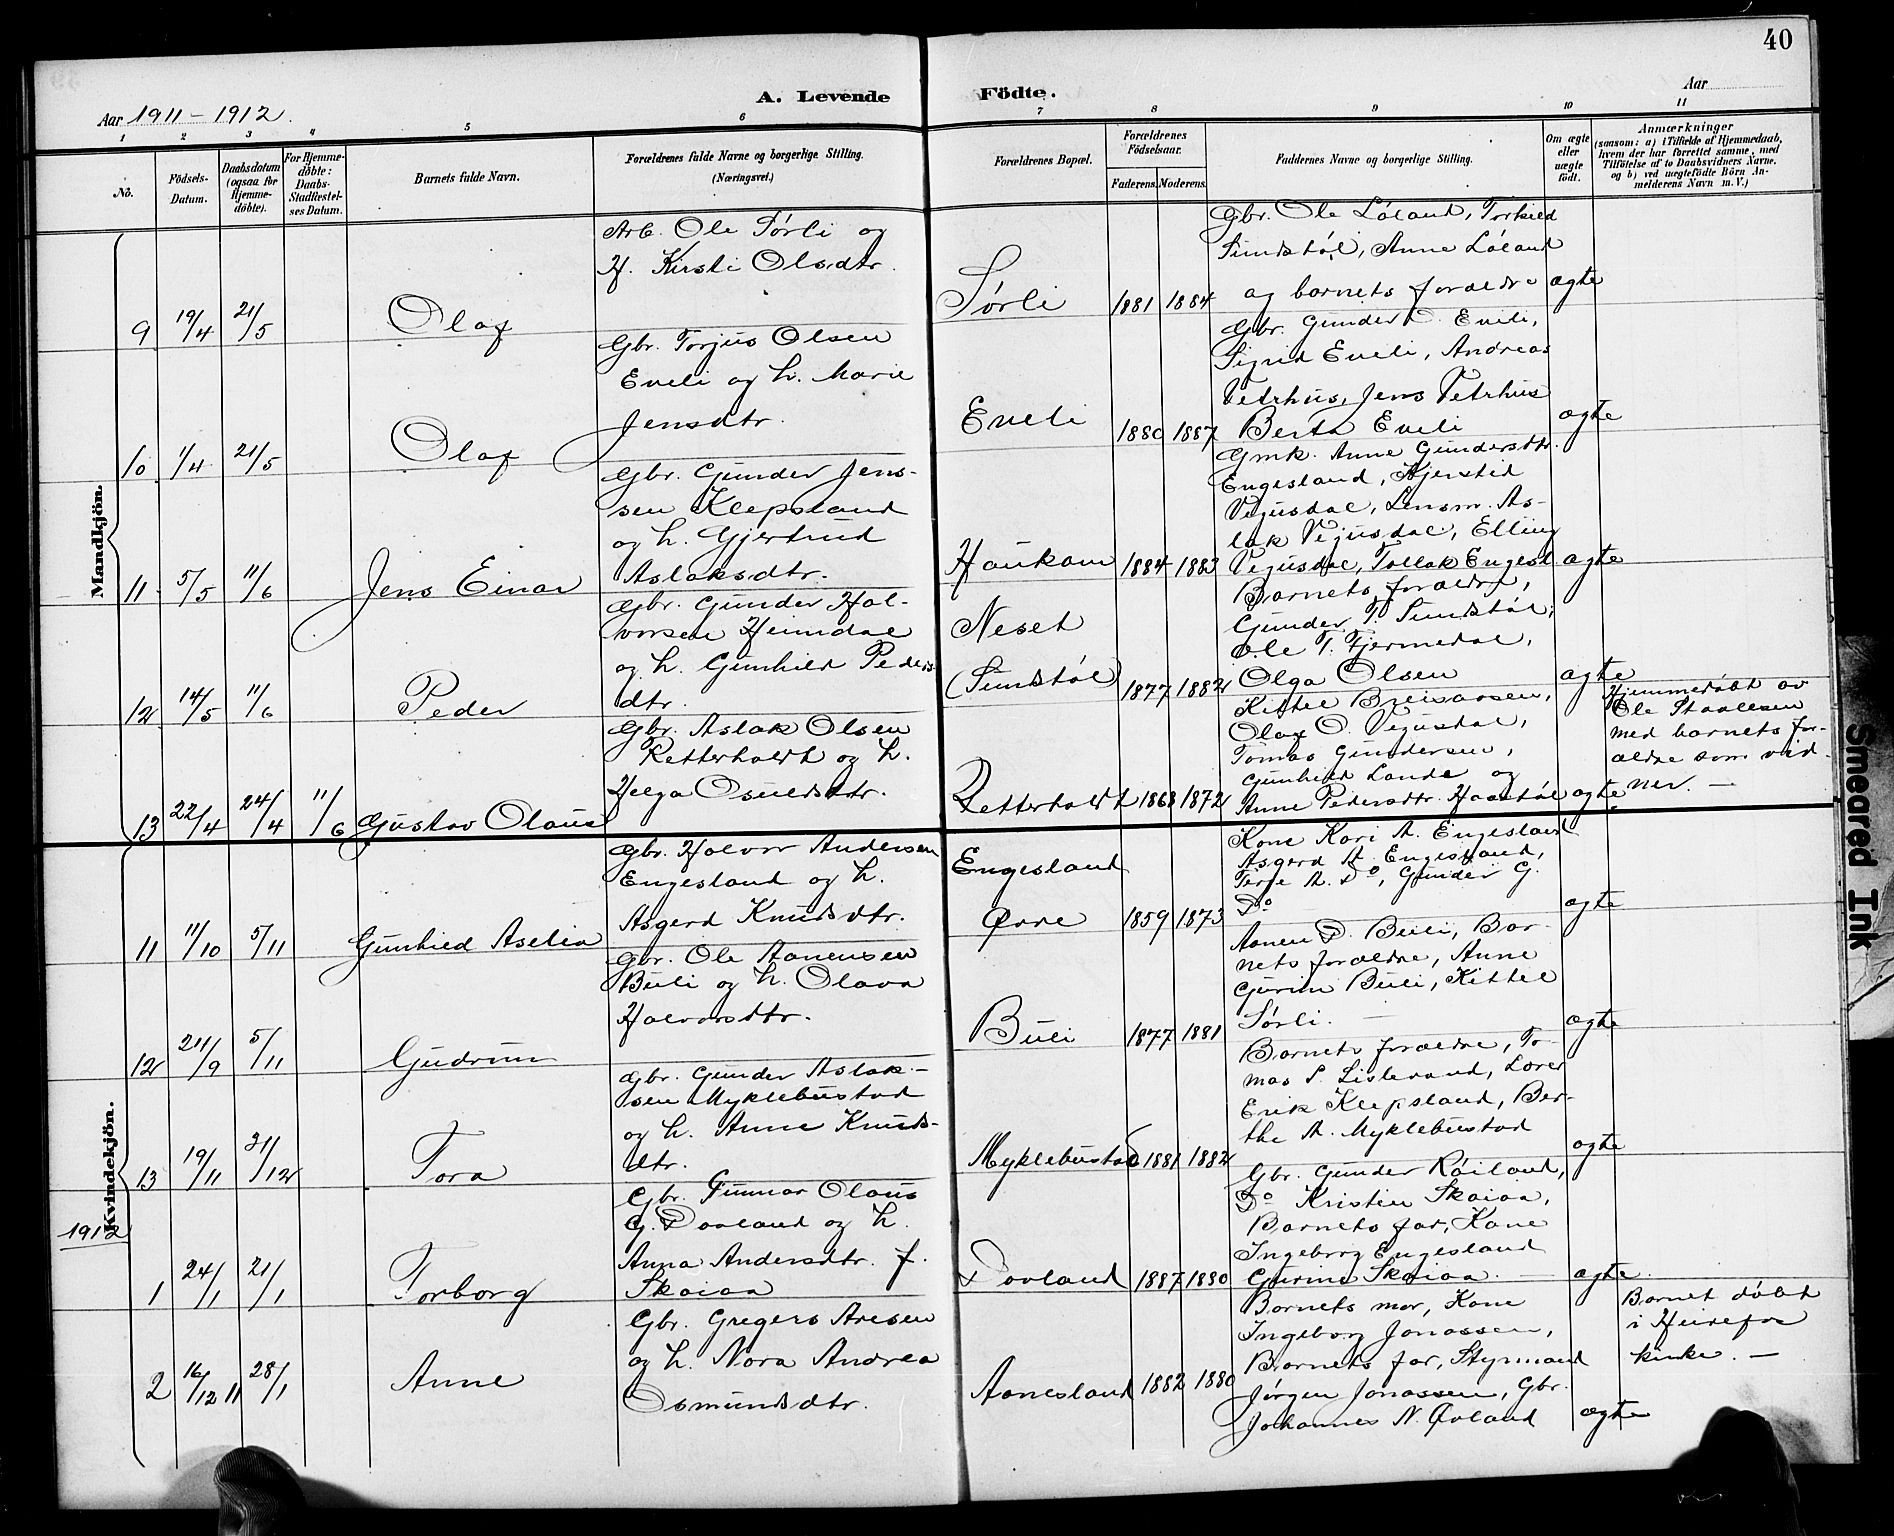 40
Aar 1911 - 1912.
A. Levende
Födte.
Aar
1
2
3
4
5
6
7
8
9
10
11
No.
Födsels-
Datum.
Daabsdatum
(ogsaa for
Hjemme-
döbte).
For Hjemme-
döbte:
Daabs-
Stadfestel-
ses Datum.
Barnets fulde Navn.
Forældrenes fulde Navne og borgerlige Stilling.
(Næringsvei.)
Forældrenes Bopæl.
Forældrenes
Födselsaar.
Faderens.
Moderens.
Faddernes Navne og borgerlige Stilling.
Om ægte
eller
uægte
födt.
Anmærkninger
(saasom: a) i Tilfælde af Hjemmedaab,
hvem der har forrettet samme, med
Tilföielse af to Daabsvidners Navne,
og b) ved uægtefödte Börn An-
melderens Navn m. V.)
Mandkjön.
9
19/4
21/5
Olaf
Arb. Ole Sørli og
H. Kirsti Olsdtr.
Sørli
1881
1884
Gbr. Ole Løland, Torkild
Sundstøl, Anne Løland
og barnets forældre
ægte
10
1/4
21/5
Olaf
Gbr. Torjus Olsen
Eveli og h. Marie
Jensdtr.
Eveli
1880
1887
Gbr. Gunder O. Eveli,
Sigrid Eveli, Andreas
Vetrhus, Jens Vetrhus
Berta Eveli
ægte
11
5/5
11/6
Jens Einar
Gbr. Gunder Jens-
sen Klepsland
og h. Gjertrud
Aslaksdtr.
Haukom
1884
1883
Gmk. Anne Gundersdtr.
Engesland, Kjerstid
Vegusdal, Lensm. As-
lak Vegusdal, Elling
Vegusdal, Tollak Engesl
ægte
12
14/5
11/6
Peder
Gbr. Gunder Hal-
vorsen Heimdal
og h. Gunhild Peders
dtr.
Neset
(Sundstøl)
1877
1882
Barnets forældre,
Gunder T. Sundstøl,
Ole T. Fjermedal,
Olga Olsen
ægte
13
22/4
24/4
11/6
Gustav Olaus
Gbr. Aslak Olsen
Retterholdt og h.
Helga Osuldsdtr.
Retterholdt
1868
1872
Kittel Breivarsen,
Olaf O. Vegusdal,
Tomas Gundersen,
Gunhild Lande og
Anne Pedersdtr. Haastøl
ægte
Hjemmedøbt av
Ole Staalesen
med barnets for-
ældre som vid-
ner. -
Kvindekjön.
11
11/10
5/11
Gunhild Aselia
Gbr. Halvor Andersen
Engesland og h.
Asgerd Knudsdtr.
Engesland
Øvre
1859
1873
Kone Kari A. Engesland
Asgerd A. Engesland,
Terje A. Do, Gunder G.
Do
ægte
12
24/9
5/11
Gudrun
Gbr. Ole Aanensen
Buli og h. Olava
Halvorsdtr.
Buli
1877
1881
Aanen D. Buli, Bar-
nets forældre, Anne
Gurine Buli, Kittel
Sørli. -
ægte
13
19/11
31/12
Tora
Gbr. Gunder Aslak-
sen Myklebustad
og h. Anne Knuds-
dtr.
Myklebustad
1881
1882
Barnets forældre, To-
mas S. Lislevand, Lærer
Erik Klepsland, Ber-
the A. Myklebustad
ægte
1912
1
24/1
21/1
Torborg
Gbr. Gunnar Olaus
G. Dovland og h.
Anna Andersdtr. f.
Skaiaa
Dovland
1887
1880
Gbr. Gunder Røiland,
Do Kristen Skaiaa,
Barnets far, Kone
Ingeborg Engesland
Gurine Skaiaa. -
ægte.
2
16/12 11
28/1
Anne
Gbr. Gregers Aresen
og h. Nora Andrea
Osmundsdtr.
Aanesland
1882
1880
Barnets mor, Kone
Ingeborg Jonassen,
Barnets far, Styrmand
Jørgen Jonassen, Gbr.
Johannes N. Øvland
ægte
Barnet døbt
i Hurefos
kirke. -
Smeared Ink